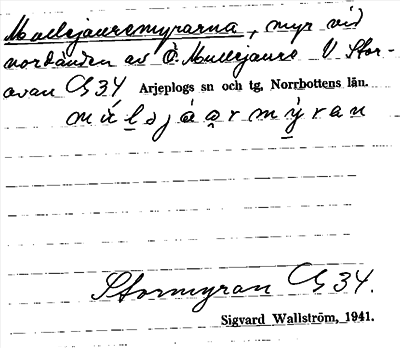 Mullejauremyrarna, myr vid
nordänden av Ö. Mullejaure V Stor-
avan G34 Arjeplogs sn och tg, Norrbottens län.
Stormyran G34.
Sigvard Wallström, 1941.